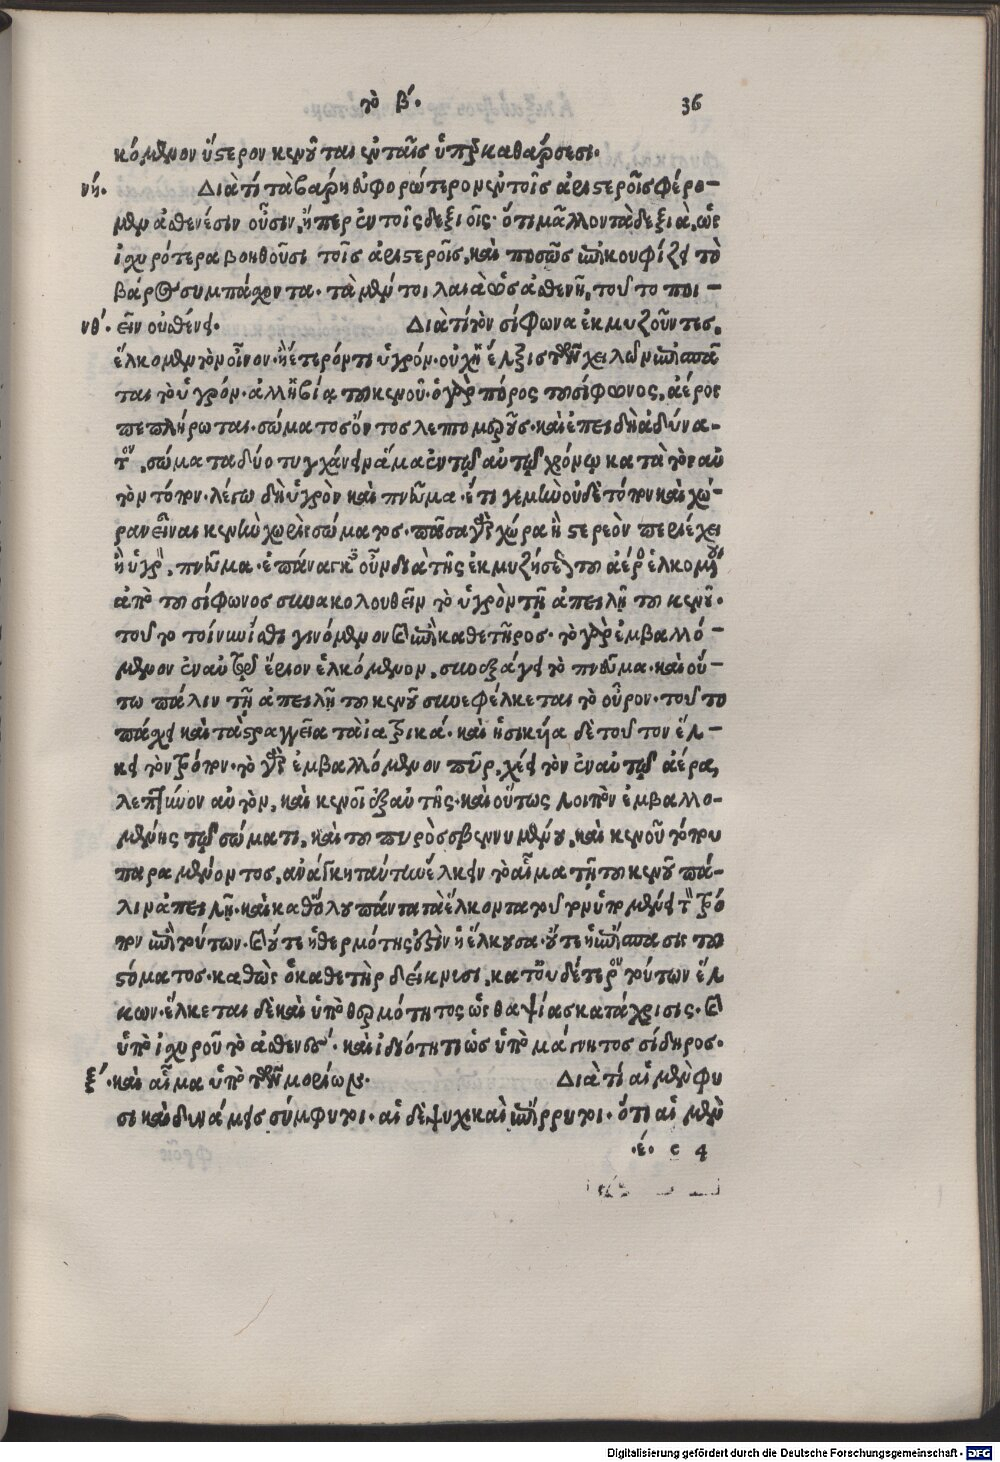 τὸ β΄.
36
κόμενον ὕστερον κενοῦται ἐν ταῖς ὑπερκαθάρσεσι.
νή. Διὰ τί τὰ βάρη εὐφορώτερον ἐν τοῖς ἀριστεροῖς φέρο-
μεν ἀσθενέσιν οὖσιν, ἤπερ ἐν τοῖς δεξιοῖς. ὅτι μᾶλλον τὰ δεξιὰ, ὡς
ἰσχυρότερα βοηθοῦσι τοῖς ἀριστεροῖς, καὶ ποσῶς ἐπικουφίζει τὸ
βάρος συμπάσχοντα. τὰ μέντοι λαιὰ ὡς ἀσθενῆ, τοῦτο ποι-
νθ΄. εῖν οὐ σθένει. Διὰ τί τὸν σίφωνα ἐκμυζοῦντες,
ἕλκομεν τὸν οἶνον. ἢ ἕτερόν τι ὑγρόν. οὐχ ἡ ἕλξις τῶν χειλῶν ἐπισπᾶ
ται τὸ ὑγρόν. ἀλλ' ἡ βία τοῦ κενοῦ. ὁ γὰρ πόρος τοῦ σίφωνος, ἀέρος
πεπλήρωται. σώματος ὄντος λεπτομεροῦς. καὶ ἐπειδὴ ἀδύνα-
τον, σώματα δύο τυγχάνειν ἅμα ἐν τῷ αὐτῷ χρόνῳ κατὰ τὸν αὐ
τὸν τόπον. λέγω δὴ ὑγρὸν καὶ πνεῦμα. ἔτι γε μὴν οὐδὲ τόπον καὶ χώ-
ραν εἶναι κενὴν χωρὶς σώματος. πᾶσα γὰρ χώρα ἢ στερεὸν περιέχει
ἢ ὑγρὸν, ἢ πνεῦμα. ἐπάναγκες οὖν διὰ τῆς ἐκμυζήσεως τοῦ ἀέρος ἑλκομένου
ἀπὸ τοῦ σίφωνος συνακολουθεῖν τὸ ὑγρὸν τῇ ἀπειλῇ τοῦ κενοῦ.
τοῦτο τοίνυν ἴσθι γινόμενον καὶ ἐπὶ καθετῆρος. τὸ γὰρ ἐμβαλλό-
μενον ἐν αὐτῷ ἔριον ἑλκόμενον, συνεξάγει τὸ πνεῦμα. καὶ οὕ-
τω πάλιν τῇ ἀπειλῇ τοῦ κενοῦ συνεφέλκεται τὸ οὖρον. τοῦτο
πάσχει καὶ τὰ στραγγεῖα τὰ ἰατρικά. καὶ ἡ σικύα δὲ τοῦτον ἕλ-
κει τὸν τρόπον. τὸ γὰρ ἐμβαλλόμενον πῦρ, χεῖ τὸν ἐν αὐτῷ ἀέρα,
λεπτύνον αὐτὸν, καὶ κενοῖ ἐξ αὐτῆς. καὶ οὕτως λοιπὸν ἐμβαλλο-
μένης τῷ σώματι, καὶ τοῦ πυρὸς σβεννυμένου, καὶ κενοῦ τόπου
παραμένοντος, ἀνάγκη ταύτην ἕλκειν τὸ αἷμα τῇ τοῦ κενοῦ πά-
λιν ἀπειλῇ. καὶ καθόλου πάντα τὰ ἕλκοντα τοῦτον ὑπομένει τὸν τρό
πον ἐπὶ τούτων. καὶ οὔτε ἡ θερμότης ἐστὶν ἡ ἕλκουσα. οὔτε ἡ ἐπίσπασις τοῦ
στόματος. καθὼς ὁ καθετὴρ δείκνυσι, κατ' οὐδέτερον τούτων ἕλ
κων. ἕλκεται δὲ καὶ ὑπὸ θερμότητος ὡς θαψίας κατάχρισις. καὶ
ὑπὸ ἰσχυροῦ τὸ ἀσθενές. καὶ ἰδιότητι ὡς ὑπὸ μάγνητος σίδηρος.
ξ΄. καὶ αἷμα ὑπὸ τῶν μορίων. Διὰ τί αἱ μὲν φυ
σικαὶ δυνάμεις σύμφυτοι. αἱ δὲ ψυχικαὶ ἐπίρρυτοι. ὅτι αἱ μὲν
.έ. c 4